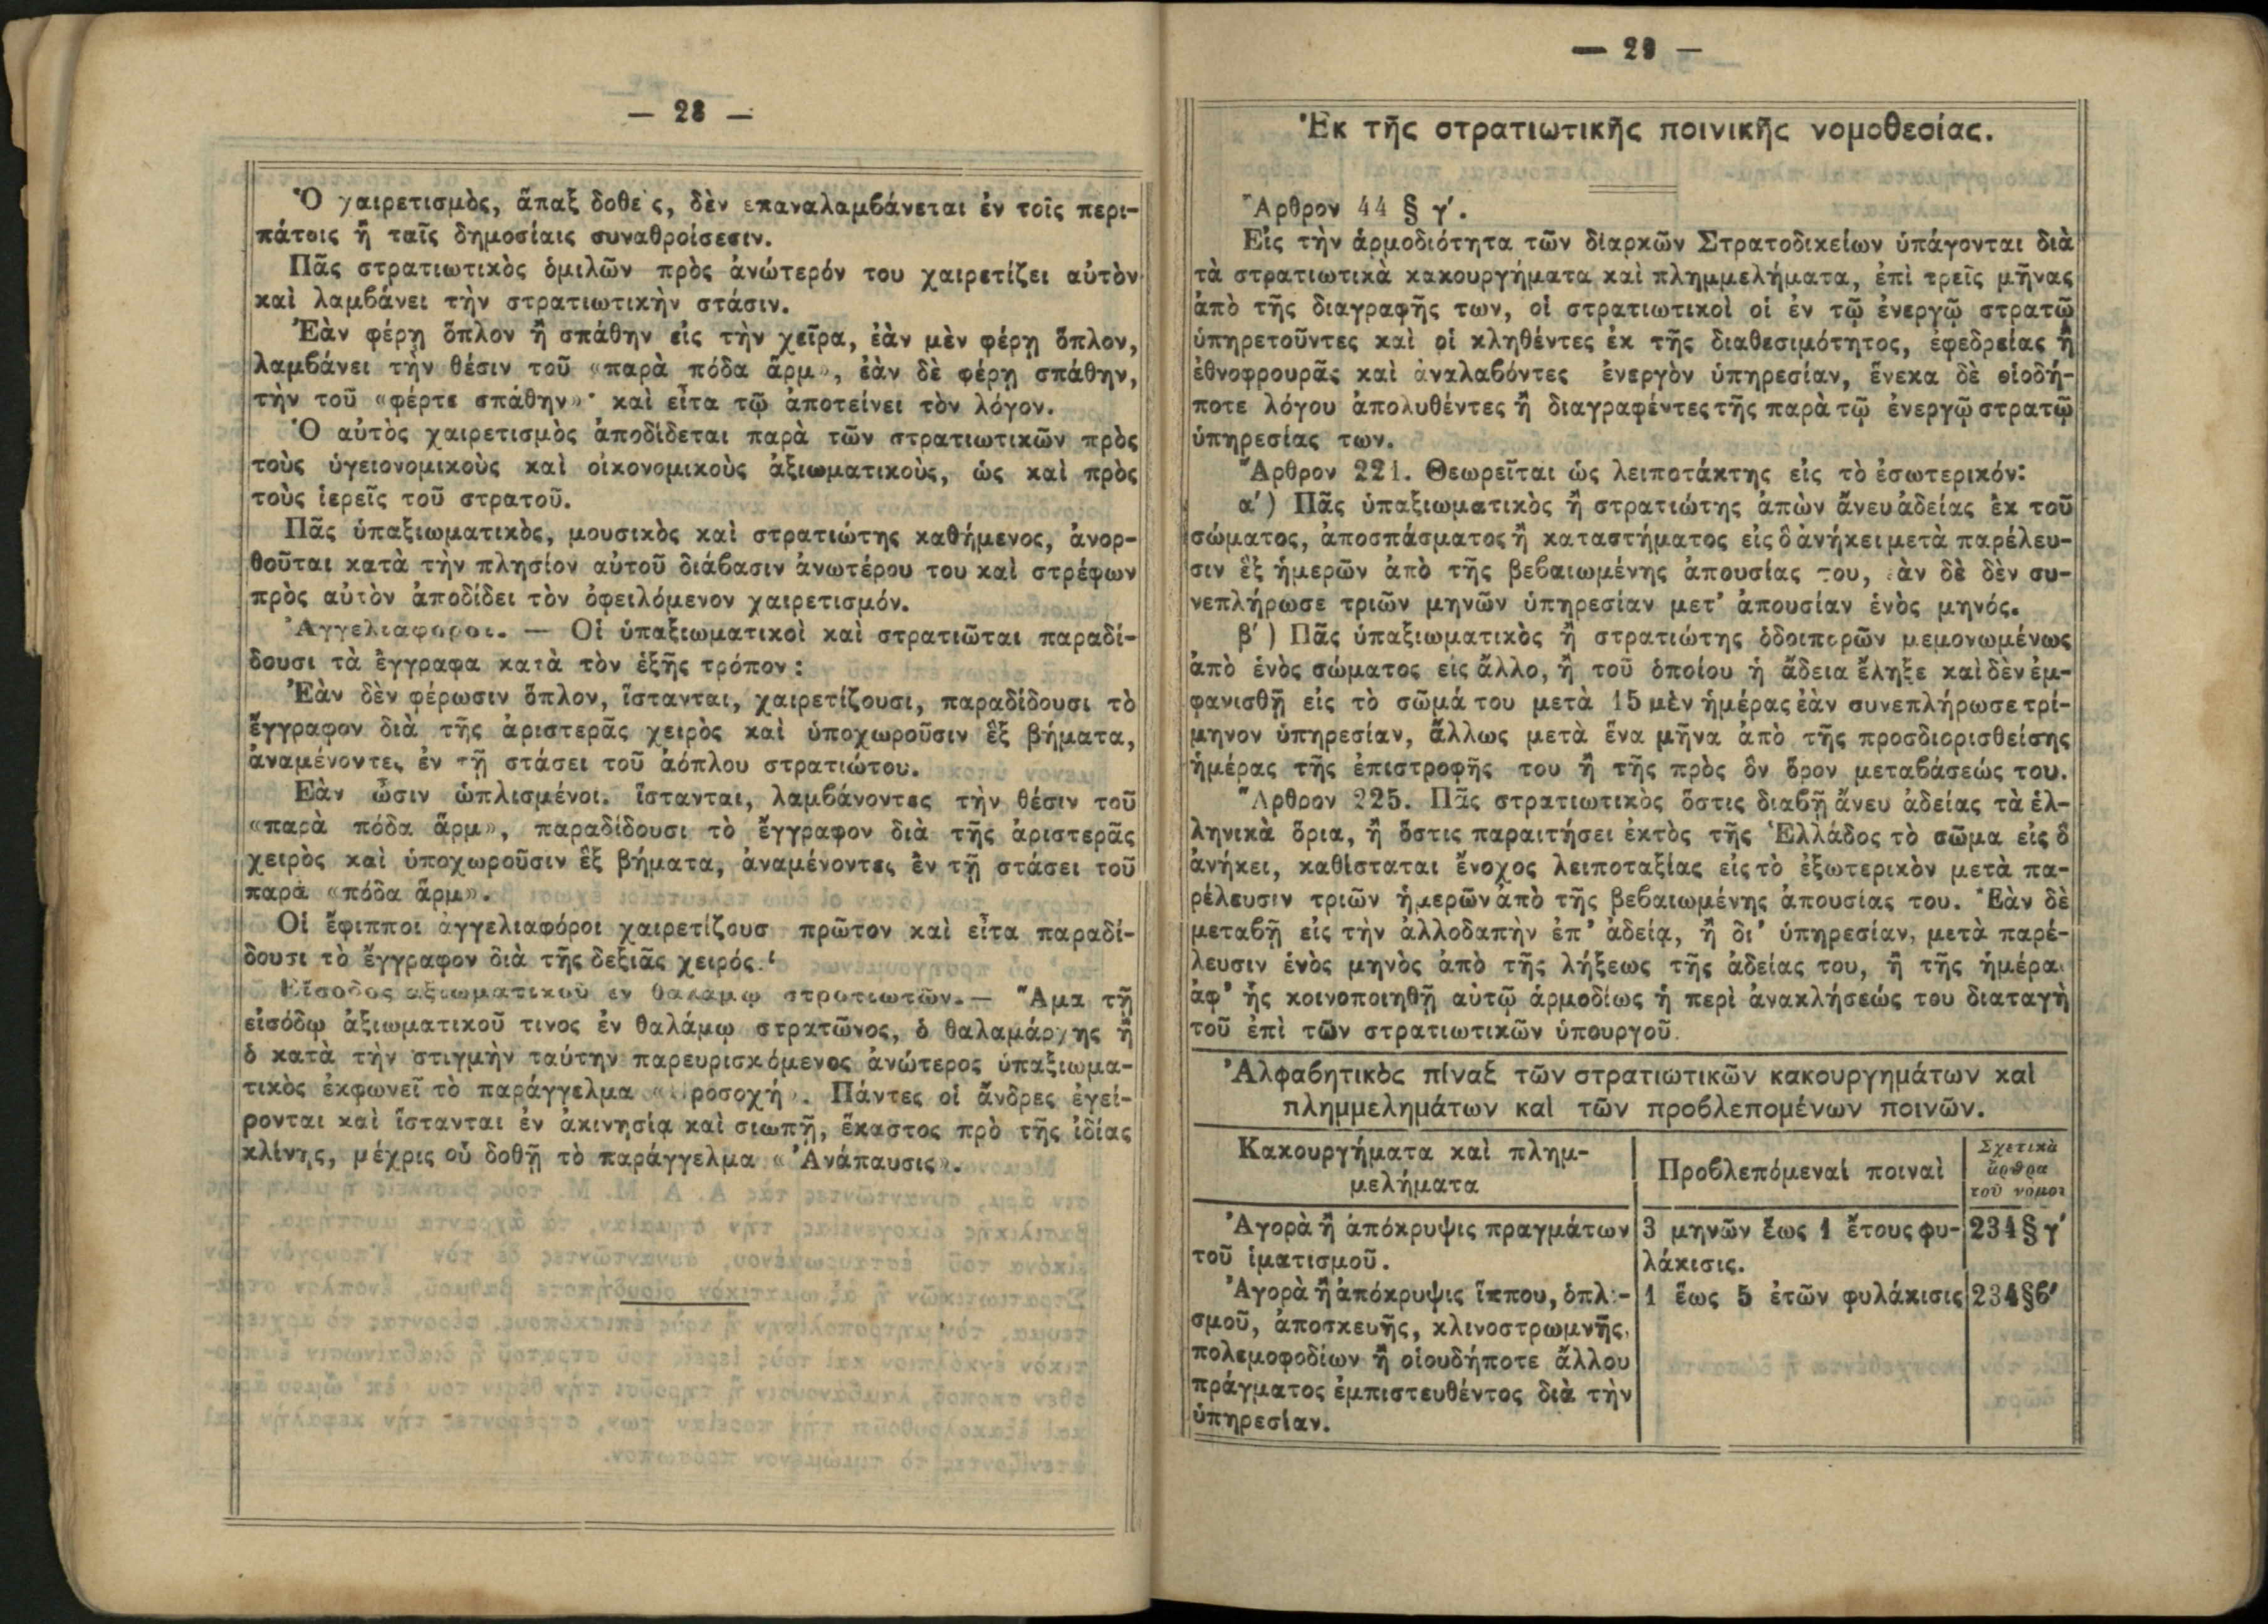 — 28 —
Ὁ χαιρετισμὸς, ἅπαξ δοθείς, δὲν ἐπαναλαμβάνεται ἐν τοῖς περι-
πάτοις ἢ ταῖς δημοσίαις συναθροίσεσιν.
Πᾶς στρατιωτικὸς ὁμιλῶν πρὸς ἀνώτερόν του χαιρετίζει αὐτὸν
καὶ λαμβάνει τὴν στρατιωτικὴν στάσιν.
Ἐὰν φέρῃ ὅπλον ἢ σπάθην εἰς τὴν χεῖρα, ἐὰν μὲν φέρῃ ὅπλον,
λαμβάνει τὴν θέσιν τοῦ «παρὰ πόδα ἄρμ», ἐὰν δὲ φέρῃ σπάθην,
τὴν τοῦ «φέρτε σπάθην»· καὶ εἶτα τῷ ἀποτείνει τὸν λόγον.
Ὁ αὐτὸς χαιρετισμὸς ἀποδίδεται παρὰ τῶν στρατιωτικῶν πρὸς
τοὺς ὑγειονομικοὺς καὶ οἰκονομικοὺς ἀξιωματικοὺς, ὡς καὶ πρὸς
τοὺς ἱερεῖς τοῦ στρατοῦ.
Πᾶς ὑπαξιωματικὸς, μουσικὸς καὶ στρατιώτης καθήμενος, ἀνορ-
θοῦται κατὰ τὴν πλησίον αὐτοῦ διάβασιν ἀνωτέρου του καὶ στρέφων
πρὸς αὐτὸν ἀποδίδει τὸν ὀφειλόμενον χαιρετισμόν.
Ἀγγελιαφόροι. — Οἱ ὑπαξιωματικοὶ καὶ στρατιῶται παραδί-
δουσι τὰ ἔγγραφα κατὰ τὸν ἑξῆς τρόπον :
Ἐὰν δὲν φέρωσιν ὅπλον, ἵστανται, χαιρετίζουσι, παραδίδουσι τὸ
ἔγγραφον διὰ τῆς ἀριστερᾶς χειρὸς καὶ ὑποχωροῦσιν ἓξ βήματα,
ἀναμένοντες ἐν τῇ στάσει τοῦ ἀόπλου στρατιώτου.
Ἐὰν ὦσιν ὡπλισμένοι. ἵστανται, λαμβάνοντες τὴν θέσιν τοῦ
«παρὰ πόδα ἄρμ», παραδίδουσι τὸ ἔγγραφον διὰ τῆς ἀριστερᾶς
χειρὸς καὶ ὑποχωροῦσιν ἓξ βήματα, ἀναμένοντες ἐν τῇ στάσει τοῦ
παρὰ «πόδα ἄρμ».
Οἱ ἔφιπποι ἀγγελιαφόροι χαιρετίζουσ πρῶτον καὶ εἶτα παραδί-
δουσι τὸ ἔγγραφον διὰ τῆς δεξιᾶς χειρός.
Εἴσοδος ἀξιωματικοῦ ἐν θαλάμῳ στρατιωτῶν. — Ἅμα τῇ
εἰσόδῳ ἀξιωματικοῦ τινος ἐν θαλάμῳ στρατῶνος, ὁ θαλαμάρχης ἢ
ὁ κατὰ τὴν στιγμὴν ταύτην παρευρισκόμενος ἀνώτερος ὑπαξιωμα-
τικὸς ἐκφωνεῖ τὸ παράγγελμα «Προσοχή». Πάντες οἱ ἄνδρες ἐγεί-
ρονται καὶ ἵστανται ἐν ἀκινησίᾳ καὶ σιωπῇ, ἕκαστος πρὸ τῆς ἰδίας
κλίνης, μέχρις οὗ δοθῇ τὸ παράγγελμα «Ἀνάπαυσις».
— 29 —
Ἐκ τῆς στρατιωτικῆς ποινικῆς νομοθεσίας.
Ἄρθρον 44 § γ′.
Εἰς τὴν ἁρμοδιότητα τῶν διαρκῶν Στρατοδικείων ὑπάγονται διὰ
τὰ στρατιωτικὰ κακουργήματα καὶ πλημμελήματα, ἐπὶ τρεῖς μῆνας
ἀπὸ τῆς διαγραφῆς των, οἱ στρατιωτικοὶ οἱ ἐν τῷ ἐνεργῷ στρατῷ
ὑπηρετοῦντες καὶ οἱ κληθέντες ἐκ τῆς διαθεσιμότητος, ἐφεδρείας ἢ
ἐθνοφρουρᾶς καὶ ἀναλαβόντες ἐνεργὸν ὑπηρεσίαν, ἕνεκα δὲ οἱοδή-
ποτε λόγου ἀπολυθέντες ἢ διαγραφέντες τῆς παρὰ τῷ ἐνεργῷ στρατῷ
ὑπηρεσίας των.
Ἄρθρον 221. Θεωρεῖται ὡς λειποτάκτης εἰς τὸ ἐσωτερικόν:
α′) Πᾶς ὑπαξιωματικὸς ἢ στρατιώτης ἀπὼν ἄνευ ἀδείας ἐκ τοῦ
σώματος, ἀποσπάσματος ἢ καταστήματος εἰς ὃ ἀνήκει μετὰ παρέλευ-
σιν ἓξ ἡμερῶν ἀπὸ τῆς βεβαιωμένης ἀπουσίας του, ἐὰν δὲ δὲν συ-
νεπλήρωσε τριῶν μηνῶν ὑπηρεσίαν μετ’ ἀπουσίαν ἑνὸς μηνός.
β′) Πᾶς ὑπαξιωματικὸς ἢ στρατιώτης ὁδοιπορῶν μεμονωμένως
ἀπὸ ἑνὸς σώματος εἰς ἄλλο, ἢ τοῦ ὁποίου ἡ ἄδεια ἔληξε καὶ δὲν ἐμ-
φανισθῇ εἰς τὸ σῶμά του μετὰ 15 μὲν ἡμέρας ἐὰν συνεπλήρωσε τρί-
μηνον ὑπηρεσίαν, ἄλλως μετὰ ἕνα μῆνα ἀπὸ τῆς προσδιορισθείσης
ἡμέρας τῆς ἐπιστροφῆς του ἢ τῆς πρὸς ὃν ὅρον μεταβάσεώς του.
Ἄρθρον 225. Πᾶς στρατιωτικὸς ὅστις διαβῇ ἄνευ ἀδείας τὰ ἑλ-
ληνικὰ ὅρια, ἢ ὅστις παραιτήσει ἐκτὸς τῆς Ἑλλάδος τὸ σῶμα εἰς ὃ
ἀνήκει, καθίσταται ἔνοχος λειποταξίας εἰς τὸ ἐξωτερικὸν μετὰ πα-
ρέλευσιν τριῶν ἡμερῶν ἀπὸ τῆς βεβαιωμένης ἀπουσίας του. Ἐὰν δὲ
μεταβῇ εἰς τὴν ἀλλοδαπὴν ἐπ’ ἀδείᾳ, ἢ δι’ ὑπηρεσίαν, μετὰ παρέ-
λευσιν ἑνὸς μηνὸς ἀπὸ τῆς λήξεως τῆς ἀδείας του, ἢ τῆς ἡμέρας
ἀφ’ ἧς κοινοποιηθῇ αὐτῷ ἁρμοδίως ἡ περὶ ἀνακλήσεώς του διαταγὴ
τοῦ ἐπὶ τῶν στρατιωτικῶν ὑπουργοῦ.
Ἀλφαβητικὸς πίναξ τῶν στρατιωτικῶν κακουργημάτων καὶ
πλημμελημάτων καὶ τῶν προβλεπομένων ποινῶν.
Κακουργήματα καὶ πλημ-
μελήματα
Προβλεπόμεναί ποιναὶ
Σχετικὰ
ἄρθρα
τοῦ νόμου
Ἀγορὰ ἢ ἀπόκρυψις πραγμάτων
τοῦ ἱματισμοῦ.
3 μηνῶν ἕως 1 ἔτους φυ-
λάκισις.
234 § γ′
Ἀγορὰ ἢ ἀπόκρυψις ἵππου, ὁπλι-
σμοῦ, ἀποσκευῆς, κλινοστρωμνῆς,
πολεμοφοδίων ἢ οἱουδήποτε ἄλλου
πράγματος ἐμπιστευθέντος διὰ τὴν
ὑπηρεσίαν.
1 ἕως 5 ἐτῶν φυλάκισις
234 § β′